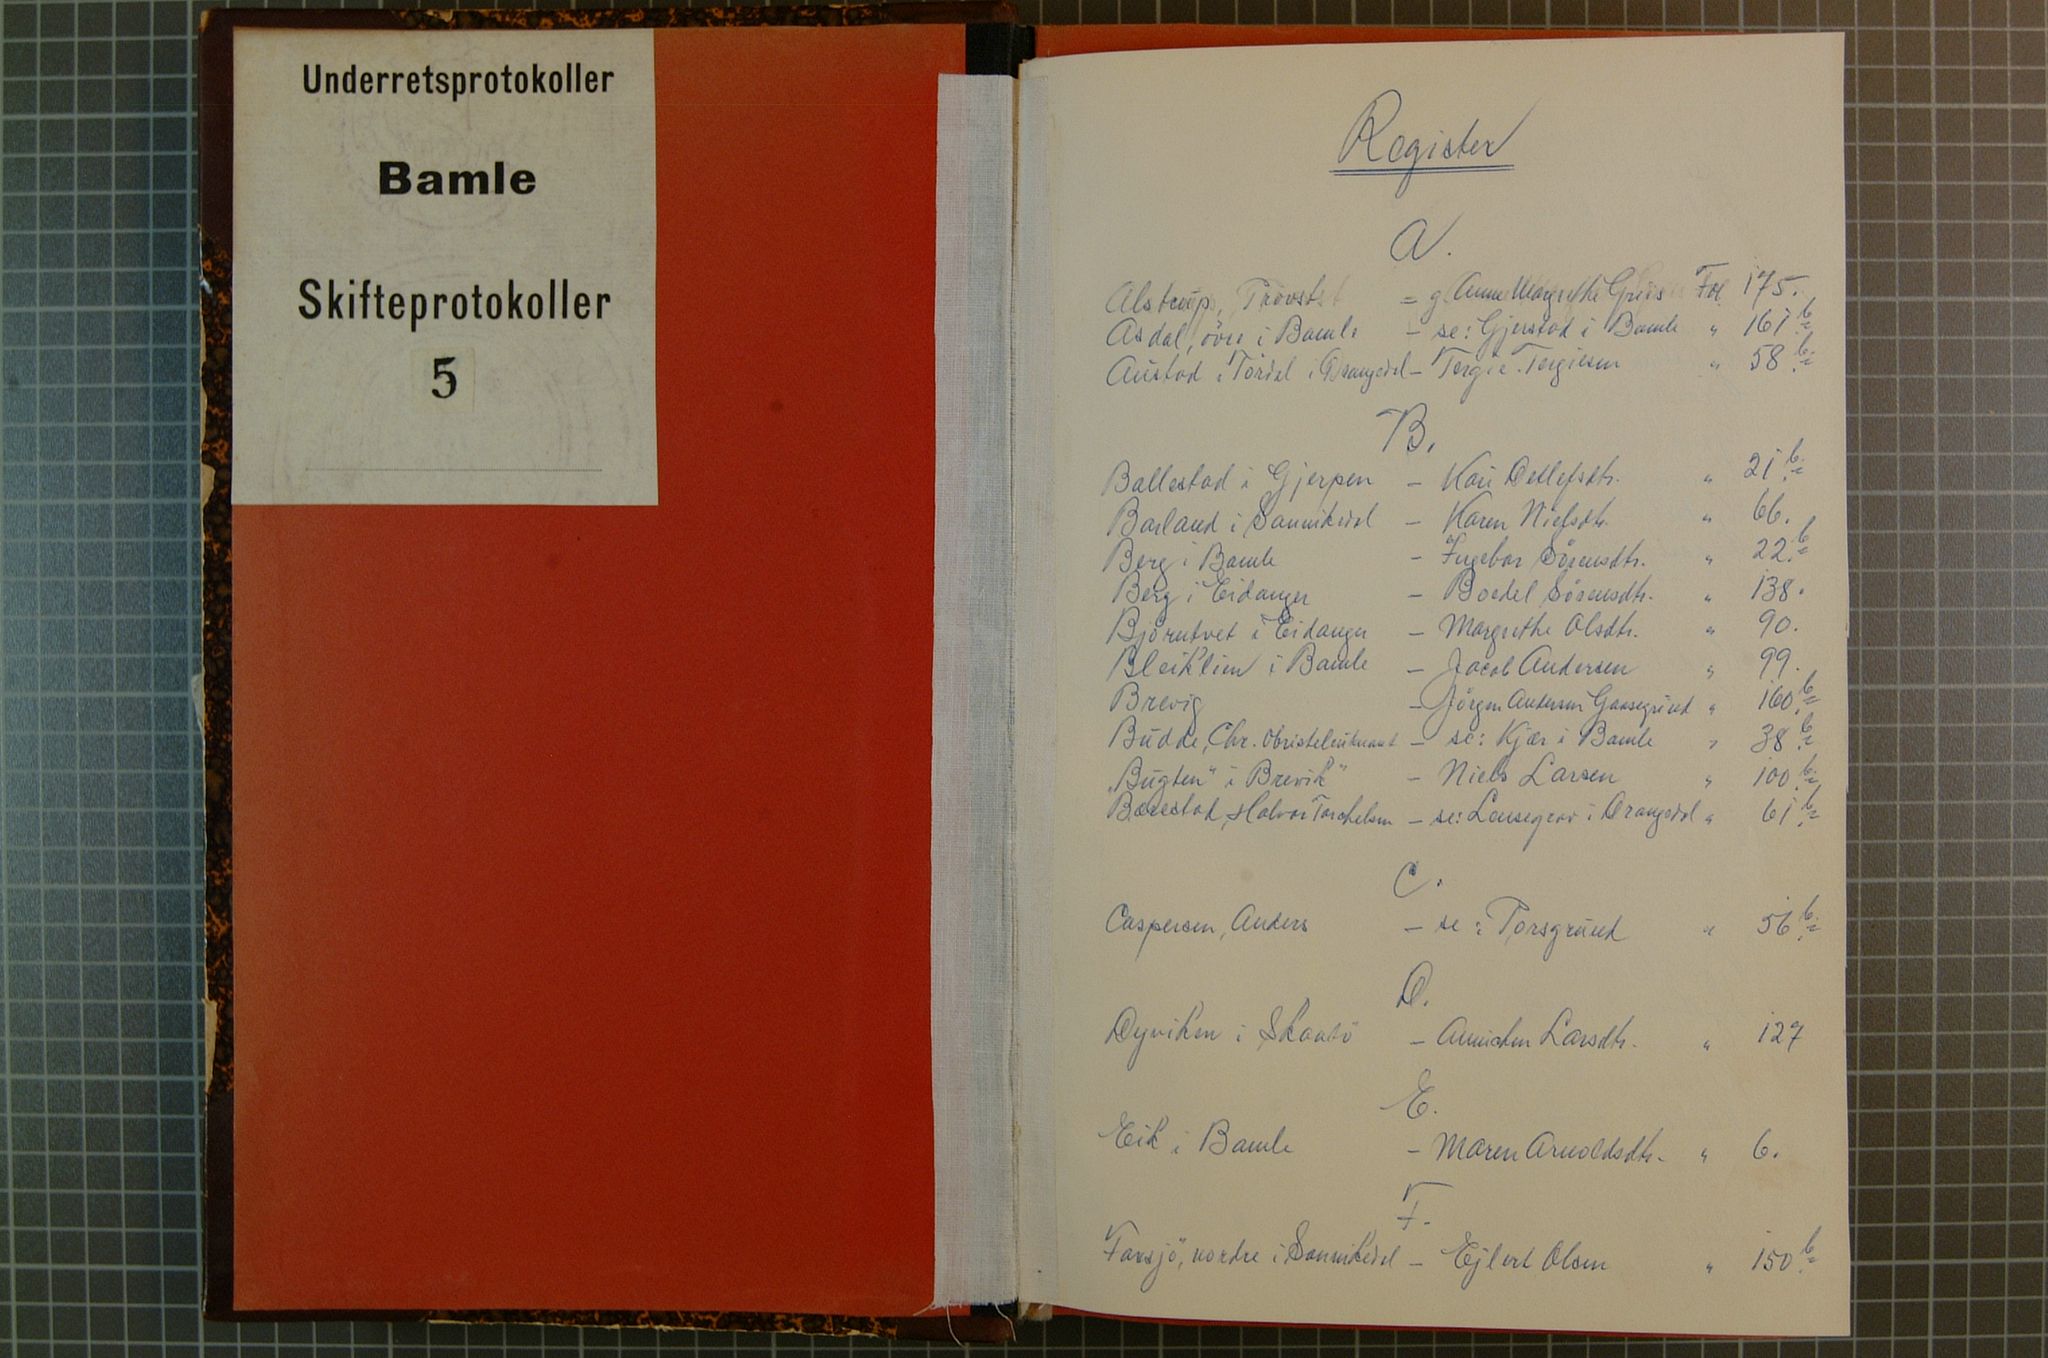 Underretsprotokoller
Bamle
Skifteprotokoller
5
Register
A.
Alstrup, Provst = g. Anne Margrethe Fol. 175.
Asdal, övre i Bamle – se: Gjerstad i Bamle " 161 b.
Austad i Tördal i Drangedal – Tergie Tergiesen " 58 b.
B.
Ballestad i Gjerpen – Kari Detlefsdtr. " 21 b.
Barland i Sannikedal – Karen Nielsdtr. " 66.
Berg i Bamle – Ingebor Sörensdtr. " 22 b.
Berg i Eidanger – Boedel Sörensdtr. " 138.
Björntvet i Eidanger – Margrethe Olsdtr. " 90.
Bleiklien i Bamle – Jacob Andersen " 99.
Brevig – Jörgen Andersen Gaasegrund " 160 b.
Budde, Chr. Obristleutnant – se: Kjær i Bamle " 38 b.
"Bugten" i Brevik – Niels Larsen " 100 b.
Bærestad, Halvor Torchelsen – se: Lensegrav i Drangedal " 61 b.
C.
Caspersen, Anders – se: Porsgrund " 56 b.
D.
Dyviken i Skaatö – Annichen Larsdtr. " 127
E.
Eik i Bamle – Maren Arnoldsdtr. " 6.
F.
Farsjö, nordre i Sannikedal – Ejlert Olsen " 150 b.